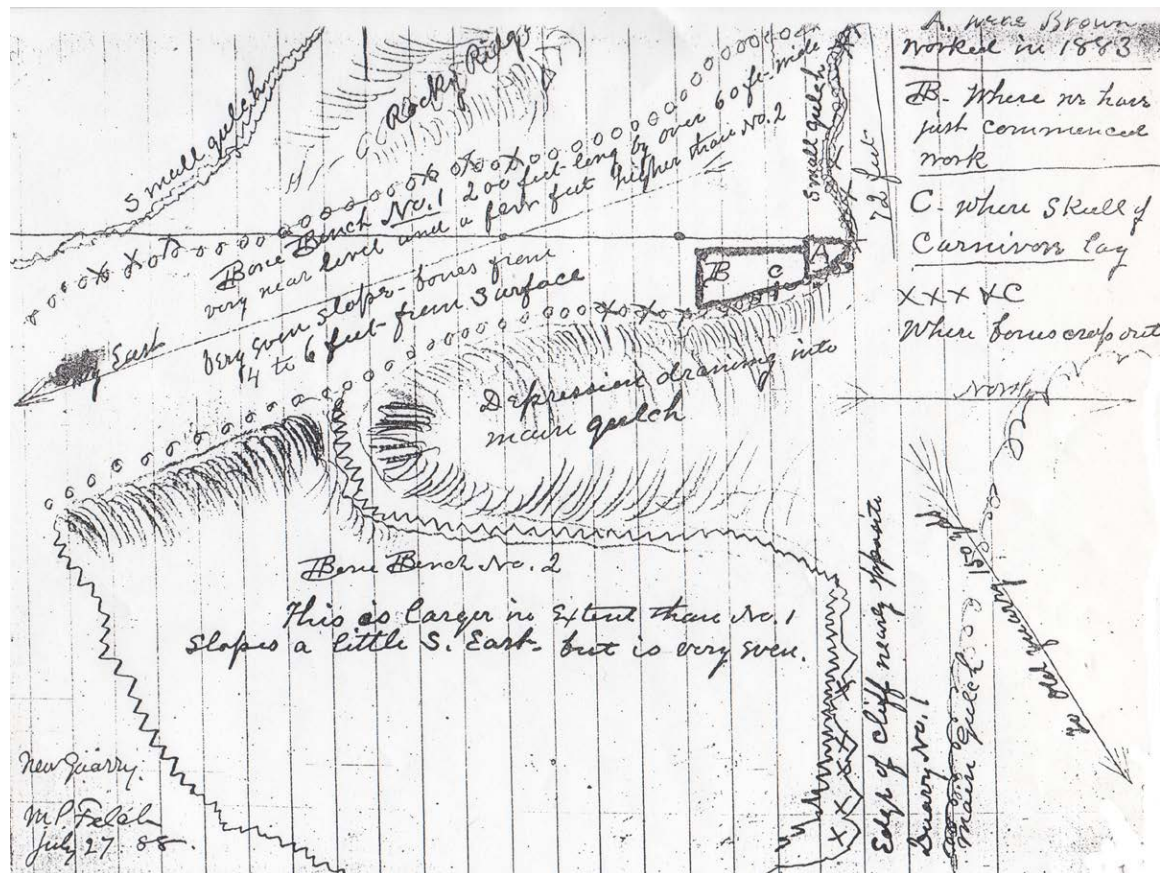 A. were Brown
worked in 1883
B. Where we have
just commenced
work
C. where Skull of
Carnivore Lay
X X X X C
Where bones crop out
North
Small gulch
Rocky Ridge
Small gulch
72 feet
Bone Bench No. 1 200 feet long by over 60 ft. wide
very near level and a few feet higher than No. 2
Very even slope - bones from
4 to 6 feet from Surface
East
B
C
A
Depression draining into
main gulch
Bone Bench No. 2
This is larger in Extent than No. 1
Slopes a little S. East - but is very even.
Edge of Cliff nearly opposite
Quarry No. 1
main gulch
to old quarry 150 yds
New Quarry.
M.P. Felch
July 27 88.